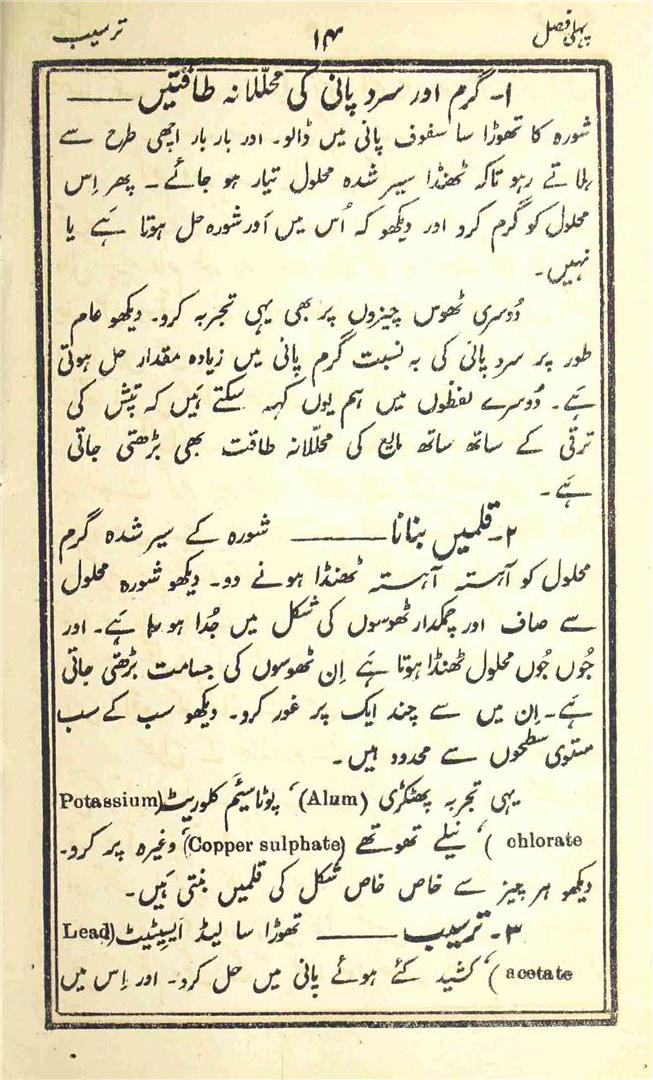 پہلی فصل ۱۴ ترسیب
۱۔ گرم اور سرد پانی کی محلّلانہ طاقتیں ——
شورہ کا تھوڑا سا سفوف پانی میں ڈالو۔ اور بار بار اچھی طرح سے
ہلاتے رہو تاکہ ٹھنڈا سیر شدہ محلول تیار ہو جائے۔ پھر اِس
محلول کو گرم کرو اور دیکھو کہ اُس میں اَور شورہ حل ہوتا ہَے یا
نہیں۔
دُوسری ٹھوس چیزوں پر بھی یہی تجربہ کرو۔ دیکھو عام
طور پر سرد پانی کی بہ نسبت گرم پانی میں زیادہ مقدار حل ہوتی
ہَے۔ دُوسرے لفظوں میں ہم یوں کہہ سکتے ہَیں کہ تپش کی
ترقی کے ساتھ ساتھ مایع کی محلّلانہ طاقت بھی بڑھتی جاتی
ہَے۔
۲۔ قلمیں بنانا —— شورہ کے سیر شدہ گرم
محلول کو آہستہ آہستہ ٹھنڈا ہونے دو۔ دیکھو شورہ محلول
سے صاف اور چمکدار ٹھوسوں کی شکل میں جُدا ہو رہا ہَے۔ اور
جُوں جُوں محلول ٹھنڈا ہوتا ہَے اِن ٹھوسوں کی جسامت بڑھتی جاتی
ہَے۔ اِن میں سے چند ایک پر غور کرو۔ دیکھو سب کے سب
مستوی سطحوں سے محدود ہیں۔
یہی تجربہ پھٹکڑی (Alum)، پوٹاسیَم کلوریٹ (Potassium
chlorate)، نیلے تھوتھے (Copper sulphate)، وغیرہ پر کرو۔
دیکھو ہر چیز سے خاص خاص شکل کی قلمیں بنتی ہَیں۔
۳۔ ترسیب —— تھوڑا سا لیڈ اَیسیٹیٹ (Lead
acetate)، کشید کئے ہوئے پانی میں حل کرو۔ اور اِس میں